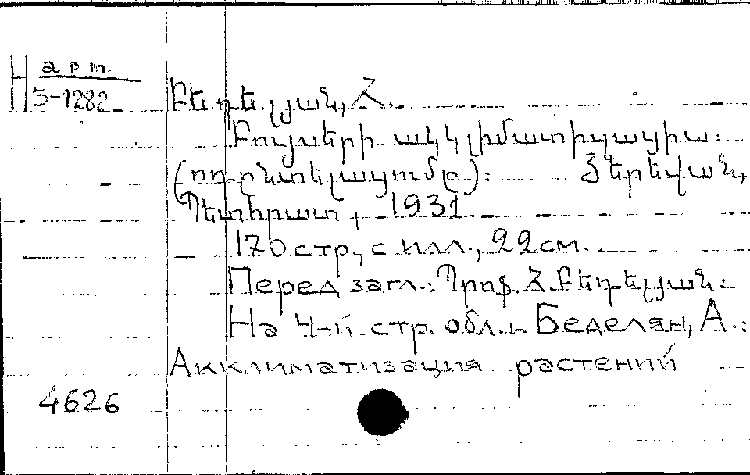 Н арт.
5-1282
Բեդելյան, Հ.
Բույսերի ակկլիմատիզացիա։
(ողընտելացումը)։ Յերեվան,
Պետհրատ, 1931
170 стр, с илл., 22 см.
Перед загл.: Պրոֆ. Հ. Բեդելյան։
На 4-й стр. обл.: Беделян, А.:
Акклиматизация растений
4626